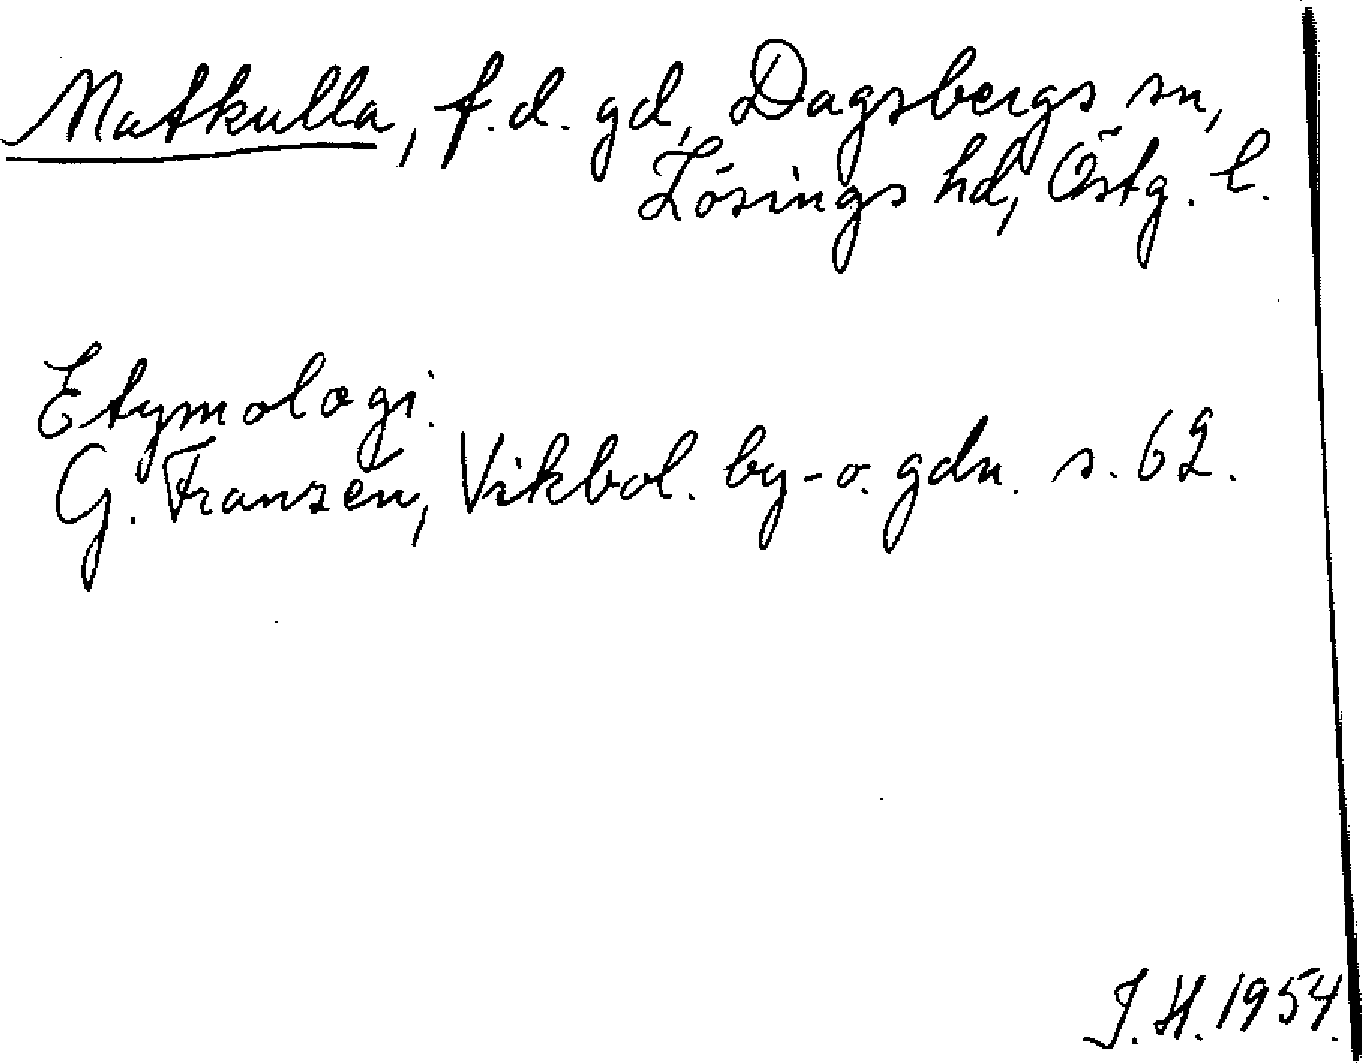 Matkulla, f.d. gd, Dagsbergs sn,
Lösings hd, Östg. l.
Etymologi.
G. Franzén, Vikbol. by- o. gdn. s. 62.
J.H. 1954.